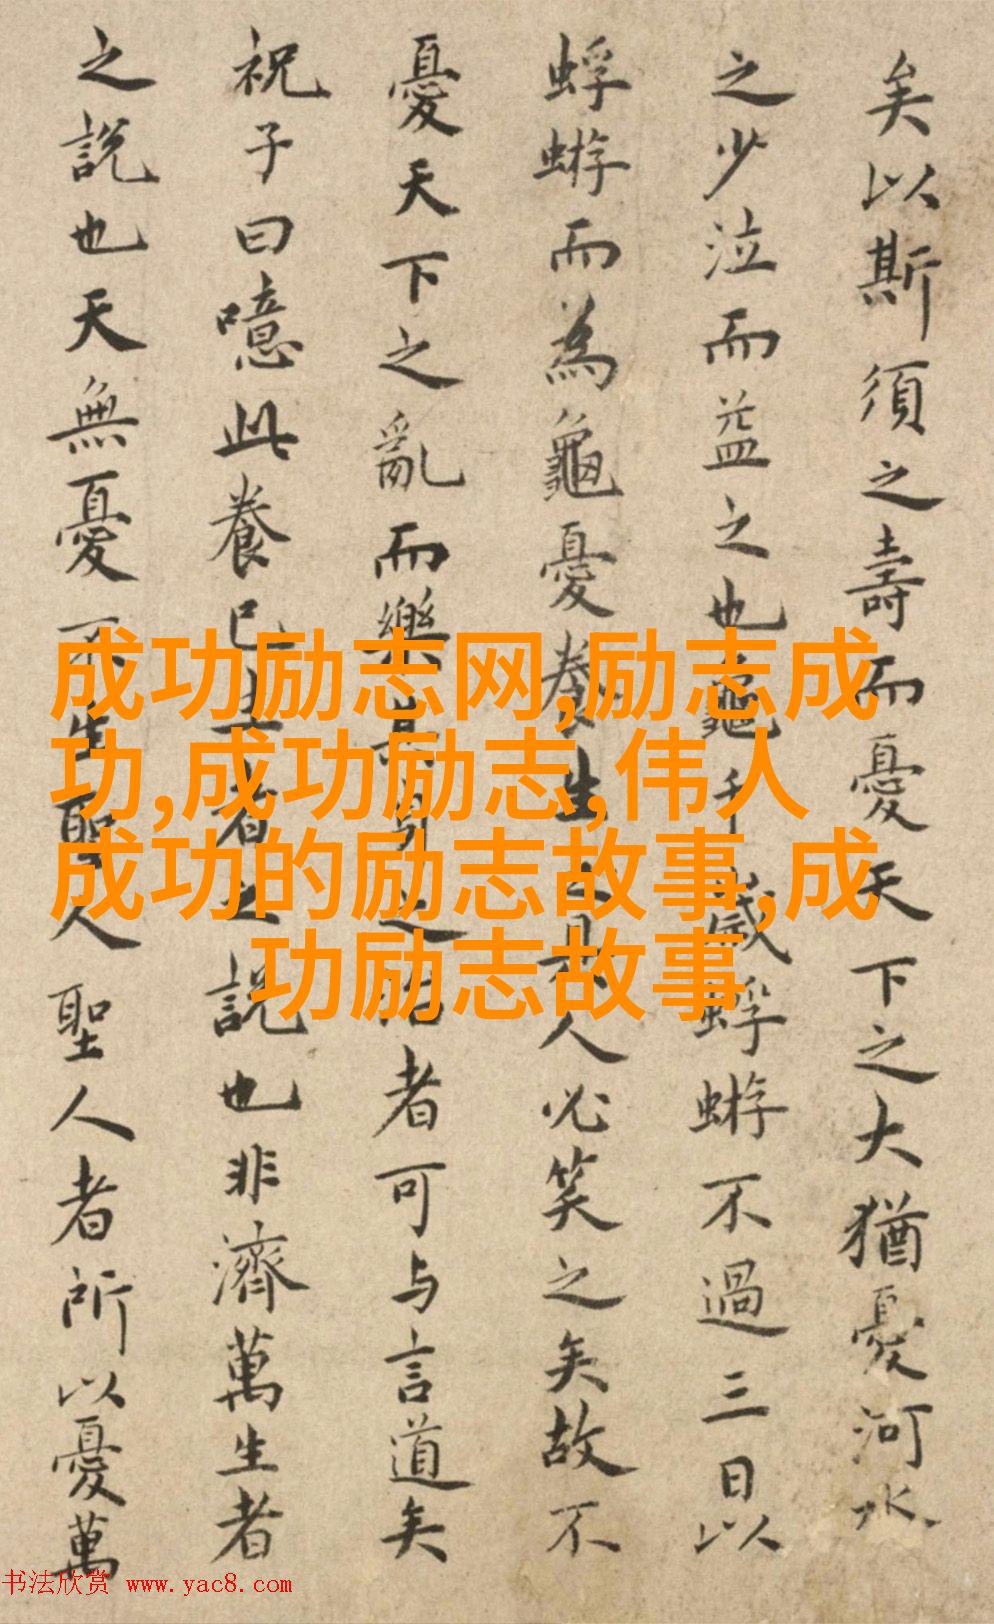 矣以斯須之壽而憂天下之大猶憂河水
之少泣而益之也龜千歲蜉蝣不過三日以
蜉蝣而為龜憂養生之具人必笑之矣故不
憂天下之亂而樂其身之治者可与言道矣
祝子曰噫此養己志者之說也非濟萬生者
之說也天無憂不生聖人聖人者所以憂萬
成功励志网,励志成
功,成功励志,伟人
成功的励志故事,成
功励志故事
书法欣赏 www.yac8.com